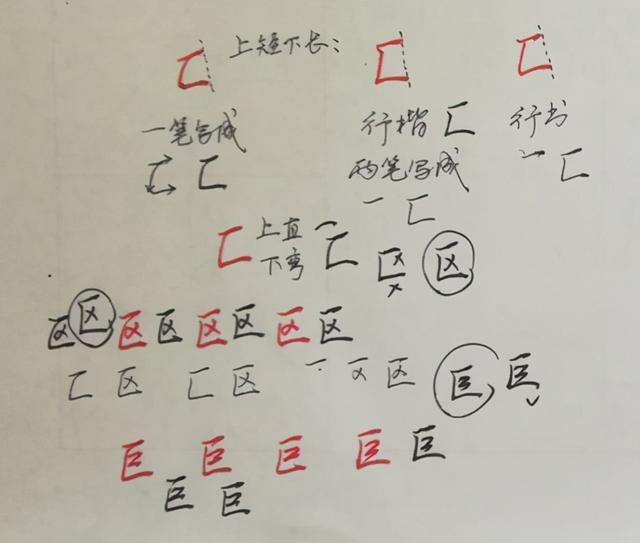 匚 上短下长: 匚 匚
一笔写成 行楷 匚 行书
匚 匚 两笔写成 一 匚
一 匚
匚 上直 一 匚 区 区
下弯
区 区 区 区 区 区 区 区
匚 区 匚 区 一 区 区 巨 巨
巨 巨 巨 巨 巨
巨 巨